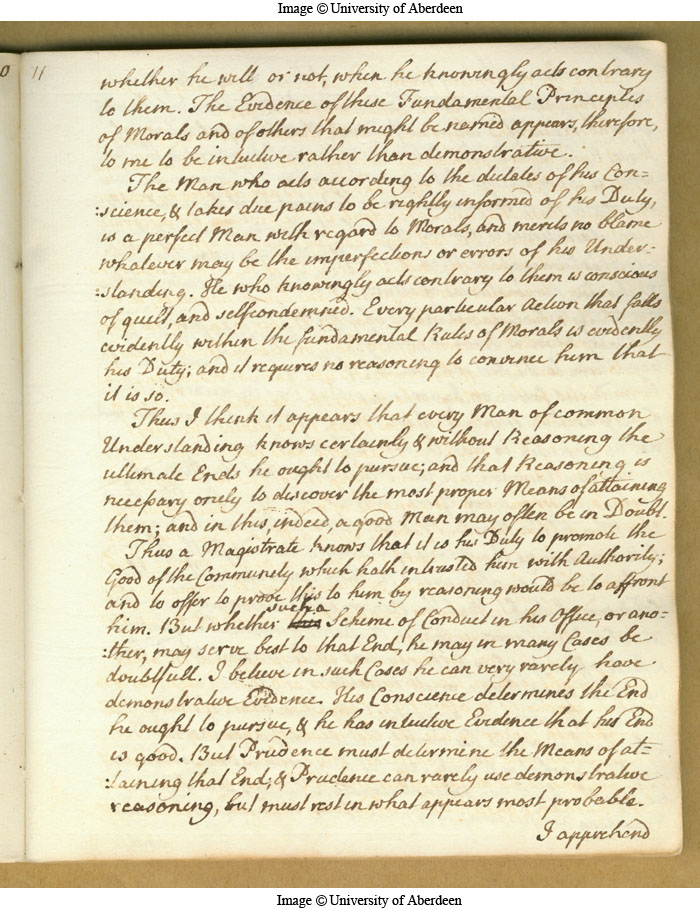 Image © University of Aberdeen
0 11
whether he will or not, when he knowingly acts contrary
to them. The Evidence of these Fundamental Principles
of Morals and of others that might be named appears, therefore,
to me to be intuitive rather than demonstrative.
The Man who acts according to the dictates of his Con=
:science, & takes due pains to be rightly informed of his Duty,
is a perfect Man with regard to Morals, and merits no blame
whatever may be the imperfections or errors of his Under=
:standing. He who knowingly acts contrary to them is conscious
of guilt, and selfcondemned. Every particular Action that falls
evidently within the fundamental Rules of Morals is evidently
his Duty; and it requires no reasoning to convince him that
it is so.
Thus I think it appears that every Man of common
Understanding knows certainly & without Reasoning the
ultimate Ends he ought to pursue; and that Reasoning is
necessary onely to discover the most proper Means of attaining
them; and in this, indeed, a good Man may often be in Doubt.
Thus a Magistrate knows that it is his Duty to promote the
Good of the Community which hath intrusted him with Authority;
and to offer to prove this to him by reasoning would be to affront
him. But whether such a Scheme of Conduct in his Office, or ano=
:ther, may serve best to that End, he may in many Cases be
doubtfull. I believe in such Cases he can very rarely have
demonstrative Evidence. His Conscience determines the End
he ought to pursue, & he has intuitive Evidence that his End
is good. But Prudence must determine the Means of at=
:taining that End; & Prudence can rarely use demonstrative
reasoning, but must rest in what appears most probable.
I apprehend
Image © University of Aberdeen